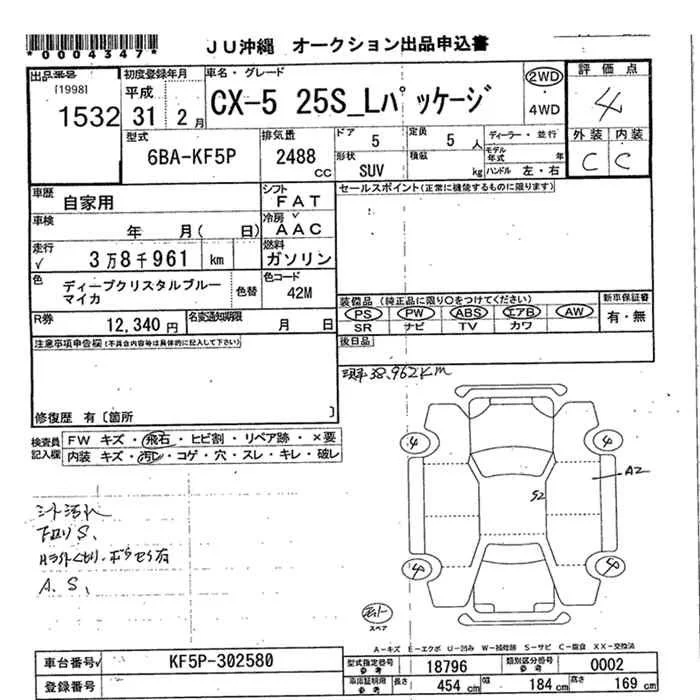 *0004347*
JU沖縄 オークション出品申込書
出品番号
[1998]
1532
初度登録年月
平成
31 2月
車名・グレード
CX-5 25S_Lパッケージ
2WD
4WD
評価点
4
外装 内装
C C
型式
6BA-KF5P
排気量
2488
CC
ドア
5
定員
5人
形状
SUV
積載
kg
ディーラー・並行
モデル年式 年
ハンドル 左・右
車歴
自家用
シフト
FAT
車検
年 月( 日)
冷房
AAC
走行
√ 3万8千961 km
燃料
ガソリン
色
ディープクリスタルブルー
マイカ
色替
色コード
42M
R券
12,340円
名変通知期限
月 日
セールスポイント(正常に機能するものに限ります)
装備品(純正品に限り○をつけてください)
PS PW ABS エアB AW
SR ナビ TV カワ
新車保証書
有・無
後日品
注意事項申告欄(不具合内容等は具体的に記入して下さい)
修復歴 有〔箇所 〕
現車38,962KM
検査員
記入欄
FW キズ・飛石・ヒビ割・リペア跡・×要
内装 キズ・汚レ・コゲ・穴・スレ・キレ・破レ
シート汚れ
下回りS、
A、S、
4 4
A2
S2
4 4
スペア
A-キズ E-エクボ U-凹み W-補修跡 S-サビ C-腐食 XX-交換済
車台番号√
KF5P-302580
登録番号
型式指定番号
参考
18796
類別区分番号
参考
0002
車庫証明用
参考
長さ
454 cm
巾
184 cm
高さ
169 cm